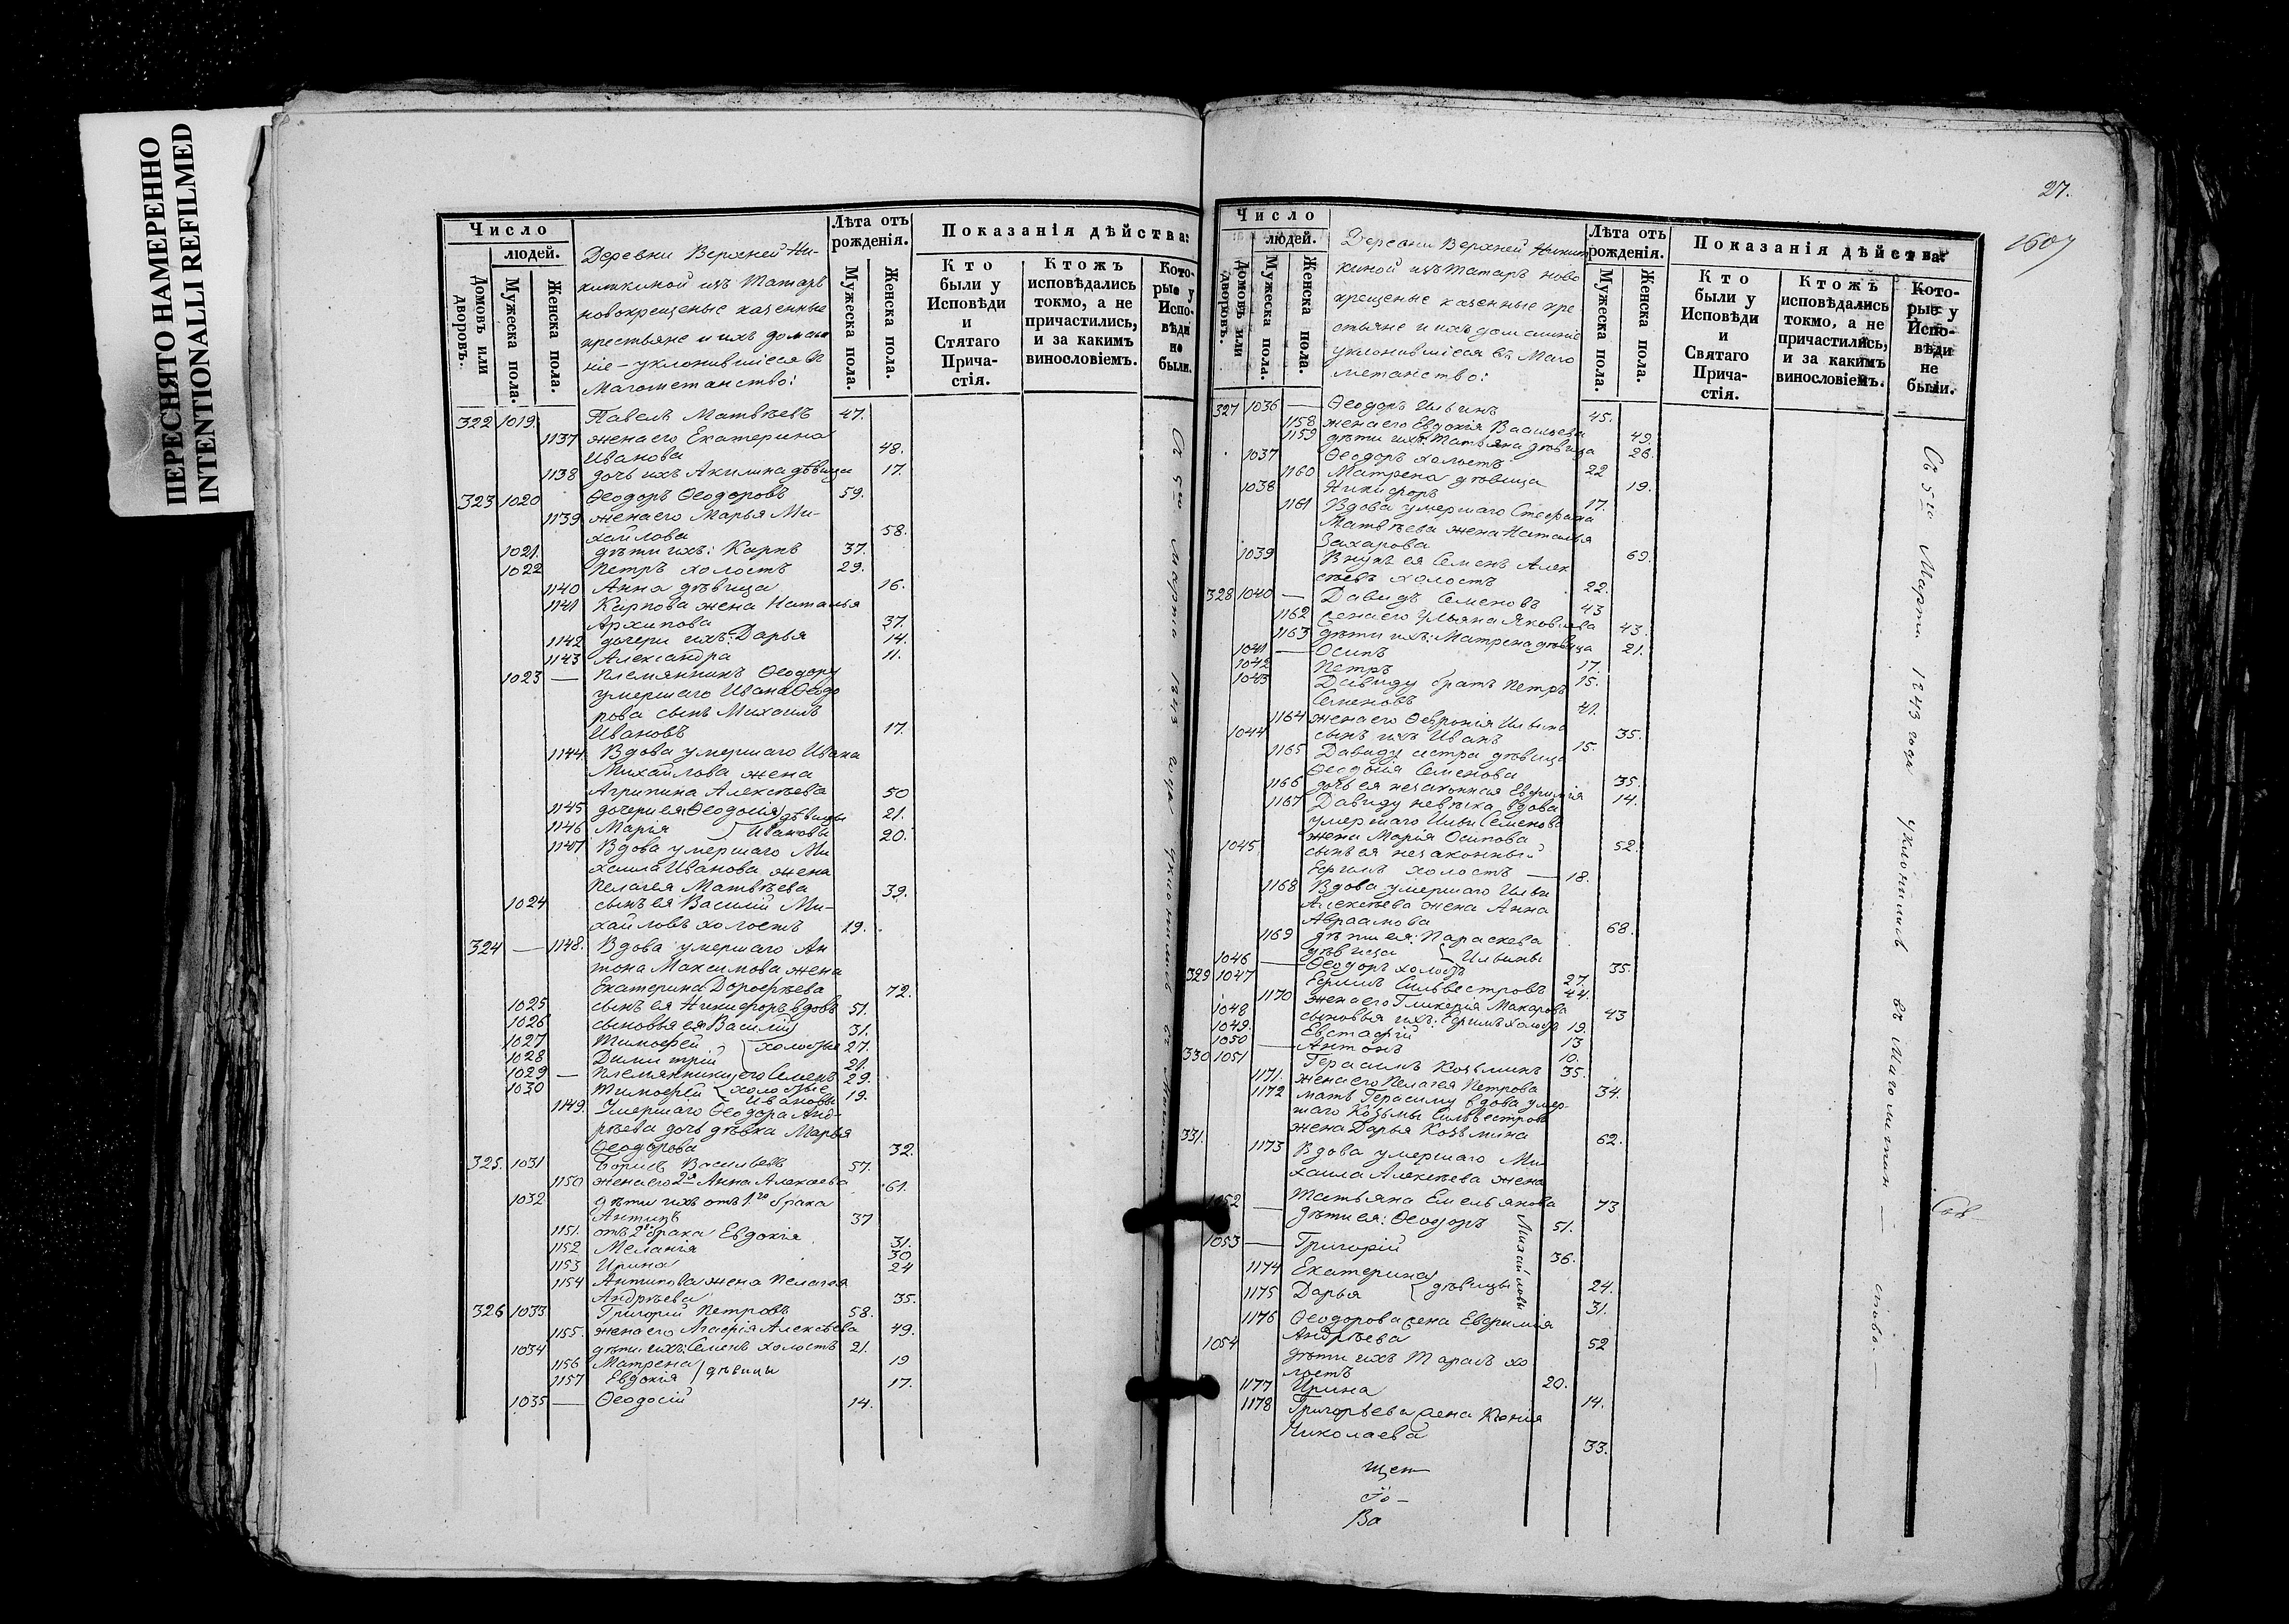 ПЕРЕСНЯТО НАМЕРЕННО
INTENTIONALLI REFILMED
Число
людей.
Домовъ или дворовъ.
Мужеска пола.
Женска пола.
Деревни Верхней Ни-
киткиной изъ Татаръ
новокрещеные казенные
крестьяне и ихъ домаш
ніе – уклонившіеся въ
Магометанство:
Лѣта отъ рожденія.
Мужеска пола.
Женска пола.
Показанія дѣйства:
Кто были у Исповѣди и Стятаго Прича-стія.
Ктожъ исповѣдались токмо, а не причастились, и за какимъ винословіемъ.
Кото-рые у Испо-вѣди не были.
322 1019. Павелъ Матвѣевъ 47.
1137 жена его Екатерина
Иванова 48.
1138 дочь ихъ Акилина дѣвица 17.
323 1020 Ѳеодоръ Ѳеодоровъ 59.
1139 жена его Марья Ми-
хайлова 58.
1021. дѣти ихъ: Карпъ 37.
1022 Петръ холостъ 29.
1140 Анна дѣвица 16.
1141 Карпова жена Наталья
Архипова 37.
1142 дочери ихъ: Дарья 14.
1143 Александра 11.
1023 — Племянникъ Ѳеодору
умершаго Ивана Ѳеодо
рова сынъ Михаилъ
Ивановъ 17.
1144. Вдова умершаго Ивана
Михайлова жена
Агрипина Алексѣева 50
1145 дочери ея: Ѳеодосія дѣвицы 21.
1146 Марія Ивановы 20.
1147 Вдова умершаго Ми
хаила Иванова жена
Пелагея Матвѣева 39.
1024 сынъ ея Василій Ми-
хайловъ холостъ 19.
324 — 1148. Вдова умершаго Ан
тона Максимова жена
Екатерина Дорофѣева 72.
1025 сынъ ея Никифоръ вдовъ 51.
1026 сыновья ея Василій 31.
1027 Тимофей холостые 27.
1028 Димитрій 21.
1029 — племянники его Семенъ 29.
1030 Тимофей холостые Ивановы 19.
1149. Умершаго Ѳеодора Анд-
рѣева дочь дѣвка Марья
Ѳеодорова 32.
325. 1031 Борисъ Васильевъ 57.
1150 жена его 2я Анна Алексѣева 61.
1032 дѣти ихъ отъ 1.го брака
Антипъ 37
1151. отъ 2го брака Евдокія 31.
1152 Меланія 30
1153 Ирина 24
1154 Антипова жена Пелагея
Андрѣева 35.
326 1033 Григорій Петровъ 58.
1155. жена его Агафія Алексѣева 49.
1034 дѣти ихъ: Семенъ холостъ 21.
1156 Матрена дѣвицы 19
1157 Евдокія 17.
1035 — Ѳеодосій 14.
27.
1607
Число
людей.
Домовъ или дворовъ.
Мужеска пола.
Женска пола.
Деревни Верхней Никит
киной изъ Татаръ ново
крещеные казенные кре
стьяне и ихъ домашніе
уклонившіеся въ Маго
метанство:
Лѣта отъ рожденія.
Мужеска пола.
Женска пола.
Показанія дѣйства:
Кто были у Исповѣди и Святаго Прича-стія.
Ктожъ исповѣдались токмо, а не причастились, и за какимъ винословіемъ.
Кото-рые у Испо-вѣди не были.
327 1036 — Ѳеодоръ Ильинъ 45.
1158 жена его Евдокія Васильева 49.
1159 дѣти ихъ: Татьяна дѣвица 26.
1037 Ѳеодоръ холостъ 22
1160 Матрена дѣвица 19.
1038 Никифоръ 17.
1161 Вдова умершаго Стефана
Матвѣева жена Наталья
Захарова 69.
1039 Внукъ ея Семенъ Алек
сѣевъ холостъ 22.
328 1040 — Давидъ Семеновъ 43
1162 жена его Ульяна Яковлева 43.
1163 дѣти ихъ: Матрена дѣвица 21.
1041 — Осипъ 17.
1042 Петръ 15.
1043 Давиду братъ Петръ
Семеновъ 41.
1164 жена его Ѳевронія Ильина 35.
1044 сынъ ихъ Иванъ 15.
1165 Давиду сестра дѣвица
Ѳеодосія Семенова 35.
1166 дочь ея незаконная Евфимія 14.
1167 Давиду невѣстка, вдова
умершаго Ильи Семенова
жена Марія Осипова 52.
1045 сынъ ея незаконный
холостъ — 18.
1168 Вдова умершаго Ильи
Алексѣева жена Анна
Авраамова 68.
1169 дѣти ея: Параскева
дѣвица Ильины 35.
1046 — Ѳеодоръ холостъ 27.
329 1047 Ермилъ Сильвестровъ 44.
1170 жена его Гликерія Макарова 43
1048 сыновья ихъ: Ефимъ холостъ 19.
1049. Евстафій 13
1050 — Антонъ 10.
330 1051 Герасимъ Козьминъ 35.
1171. жена его Пелагея Петрова 34.
1172 мать Герасиму вдова умер-
шаго Козьмы Сильвестрова
жена Дарья Козьмина 62.
331. 1173 Вдова умершаго Ми
хаила Алексѣева жена
Татьяна Емельянова 73
1052 — дѣти ея: Ѳеодоръ 51.
1053 — Григорій 36.
Михайловы
1174 Екатерина дѣвицы 24.
1175 Дарья 31.
1176 Ѳеодорова жена Евфимія
Андрѣева 52
1054 дѣти ихъ Тарасъ хо
лостъ 20.
1177 Ирина 14.
1178 Григорьева жена Ксенія
Николаева 33.
Съ 5го Марта 1843 года уклонились въ Магометан —